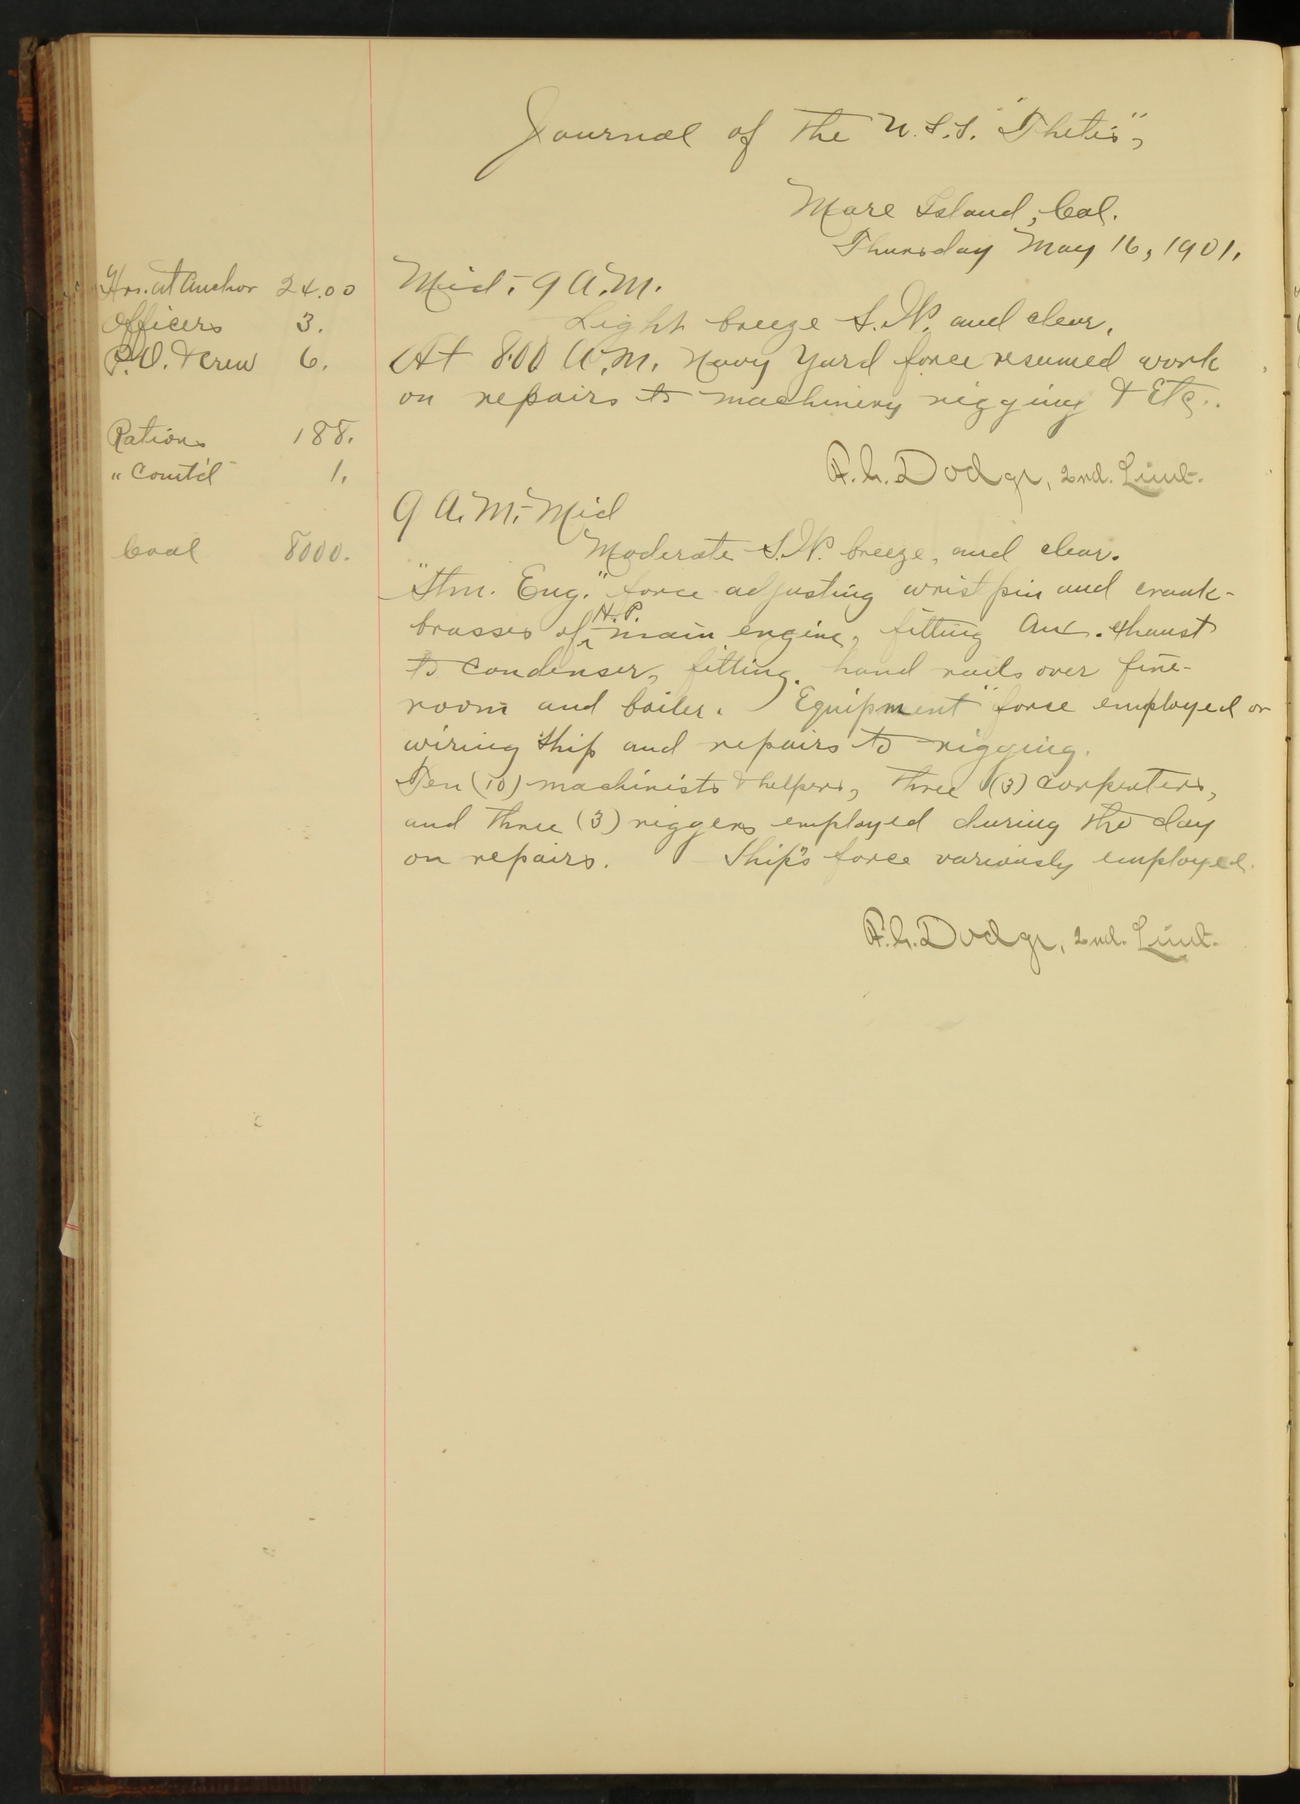 Journal of the U.S.S. "Thetis",
Mare Island, Cal.
Thursday May 16, 1901.
Hrs. at Anchor 24.00
Officers 3.
P.O. & Crew 6.
Rations 188.
" Comt'd 1.
Coal 8000.
Mid. - 9 A.M.
Light breeze S.W. and clear.
At 8.00 A.M. Navy Yard force resumed work
on repairs to machinery rigging & Etc..
F.G. Dodge, 2nd. Lieut.
9 A.M. - Mid
Moderate S.W. breeze, and clear.
"Stm. Eng." force adjusting wrist pin and crank-
brasses of H.P. main engine, fitting Aux. exhaust
to condenser, fitting hand rails over fire-
room and boiler. "Equipment" force employed on
wiring ship and repairs to rigging.
Ten (10) machinists & helpers, three (3) carpenters,
and three (3) riggers employed during the day
on repairs. Ship's force variously employed.
F.G. Dodge, 2nd. Lieut.